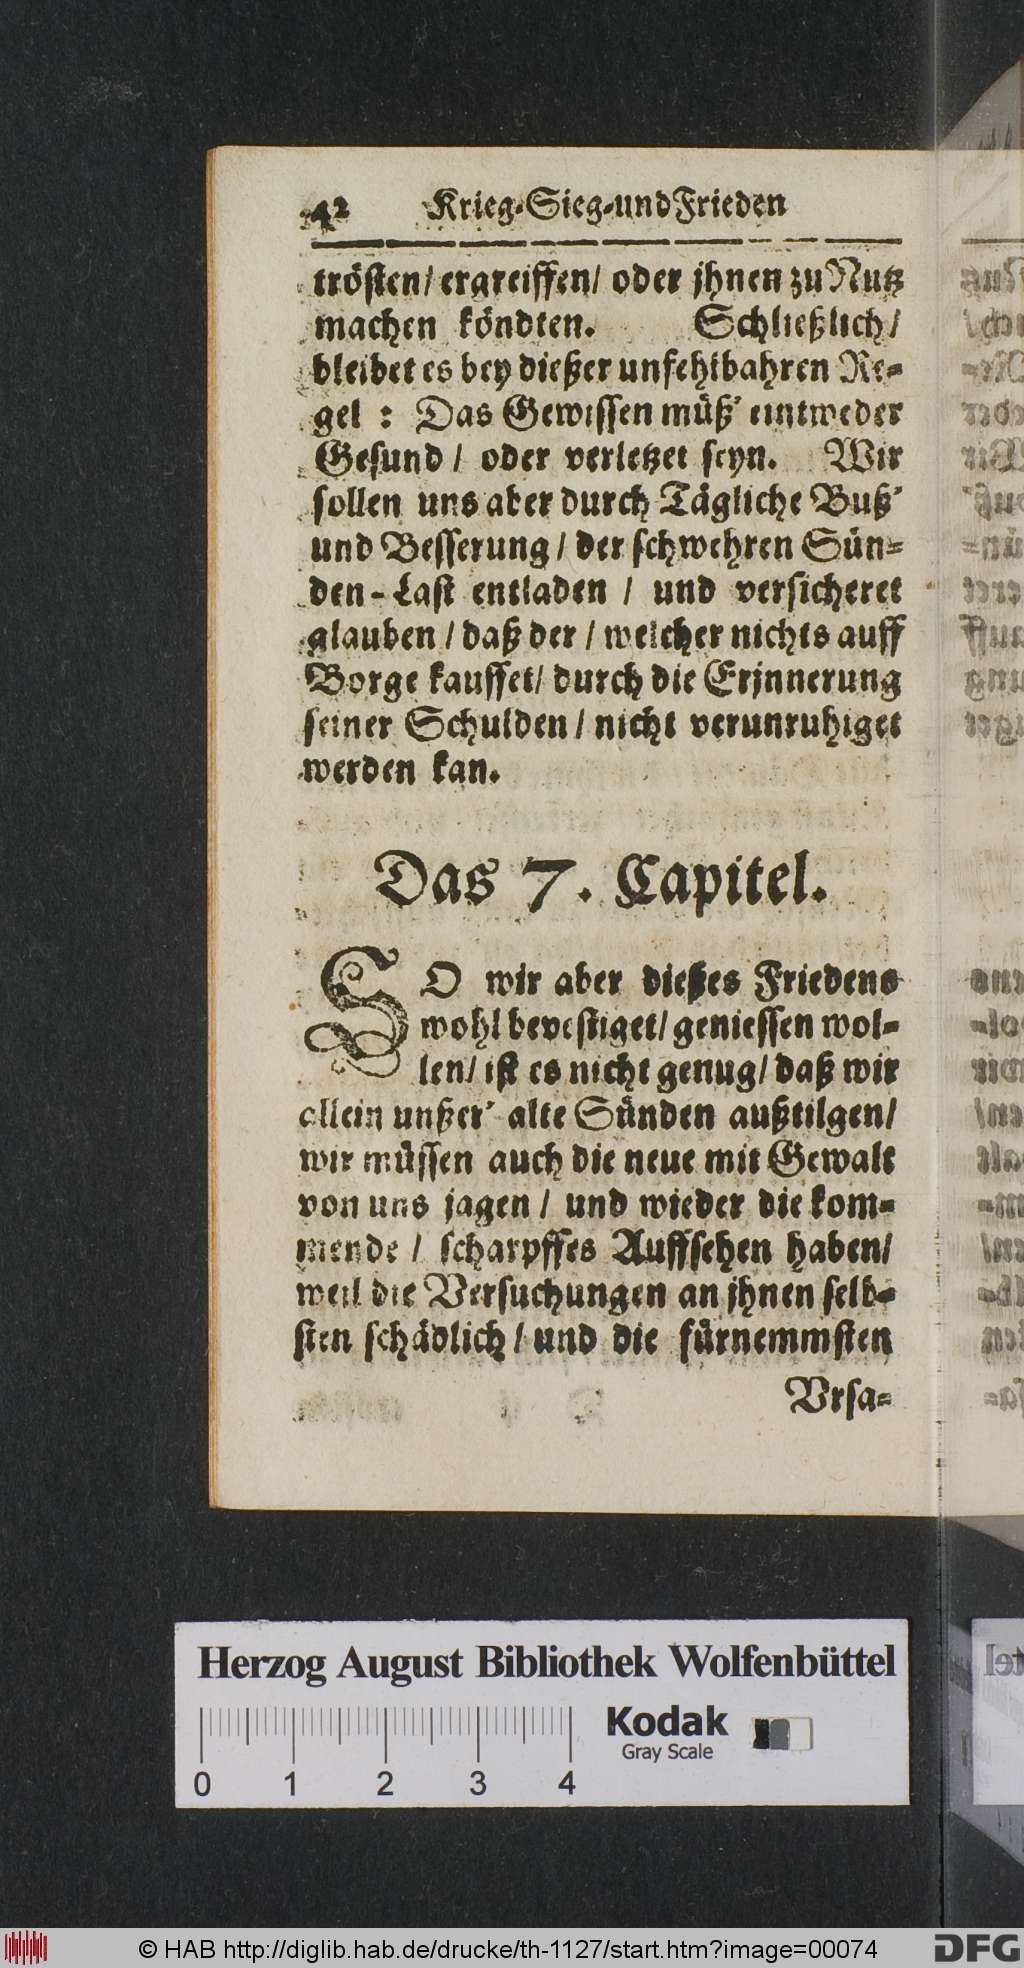 42 Krieg-Sieg-und Frieden
trösten/ ergreiffen/ oder jhnen zu Nutz
machen köndten. Schließlich/
bleibet es bey dießer unfehlbahren Re-
gel : Das Gewissen müß' eintweder
Gesund / oder verletzet seyn. Wir
sollen uns aber durch Tägliche Buß'
und Besserung / der schwehren Sün-
den-Last entladen / und versicheret
glauben / daß der / welcher nichts auff
Borge kauffet/ durch die Erjnnerung
seiner Schulden / nicht verunruhiget
werden kan.
Das 7. Capitel.
SO wir aber dießes Friedens
wohl bevestiget/ geniessen wol-
len/ ist es nicht genug/ daß wir
allein unßer' alte Sünden außtilgen/
wir müssen auch die neue mit Gewalt
von uns jagen / und wieder die kom-
mende / scharpffes Auffsehen haben/
weil die Versuchungen an jhnen selb-
sten schädlich / und die fürnemmsten
Vrsa-
Herzog August Bibliothek Wolfenbüttel
Kodak
Gray Scale
0 1 2 3 4
© HAB http://diglib.hab.de/drucke/th-1127/start.htm?image=00074
DFG